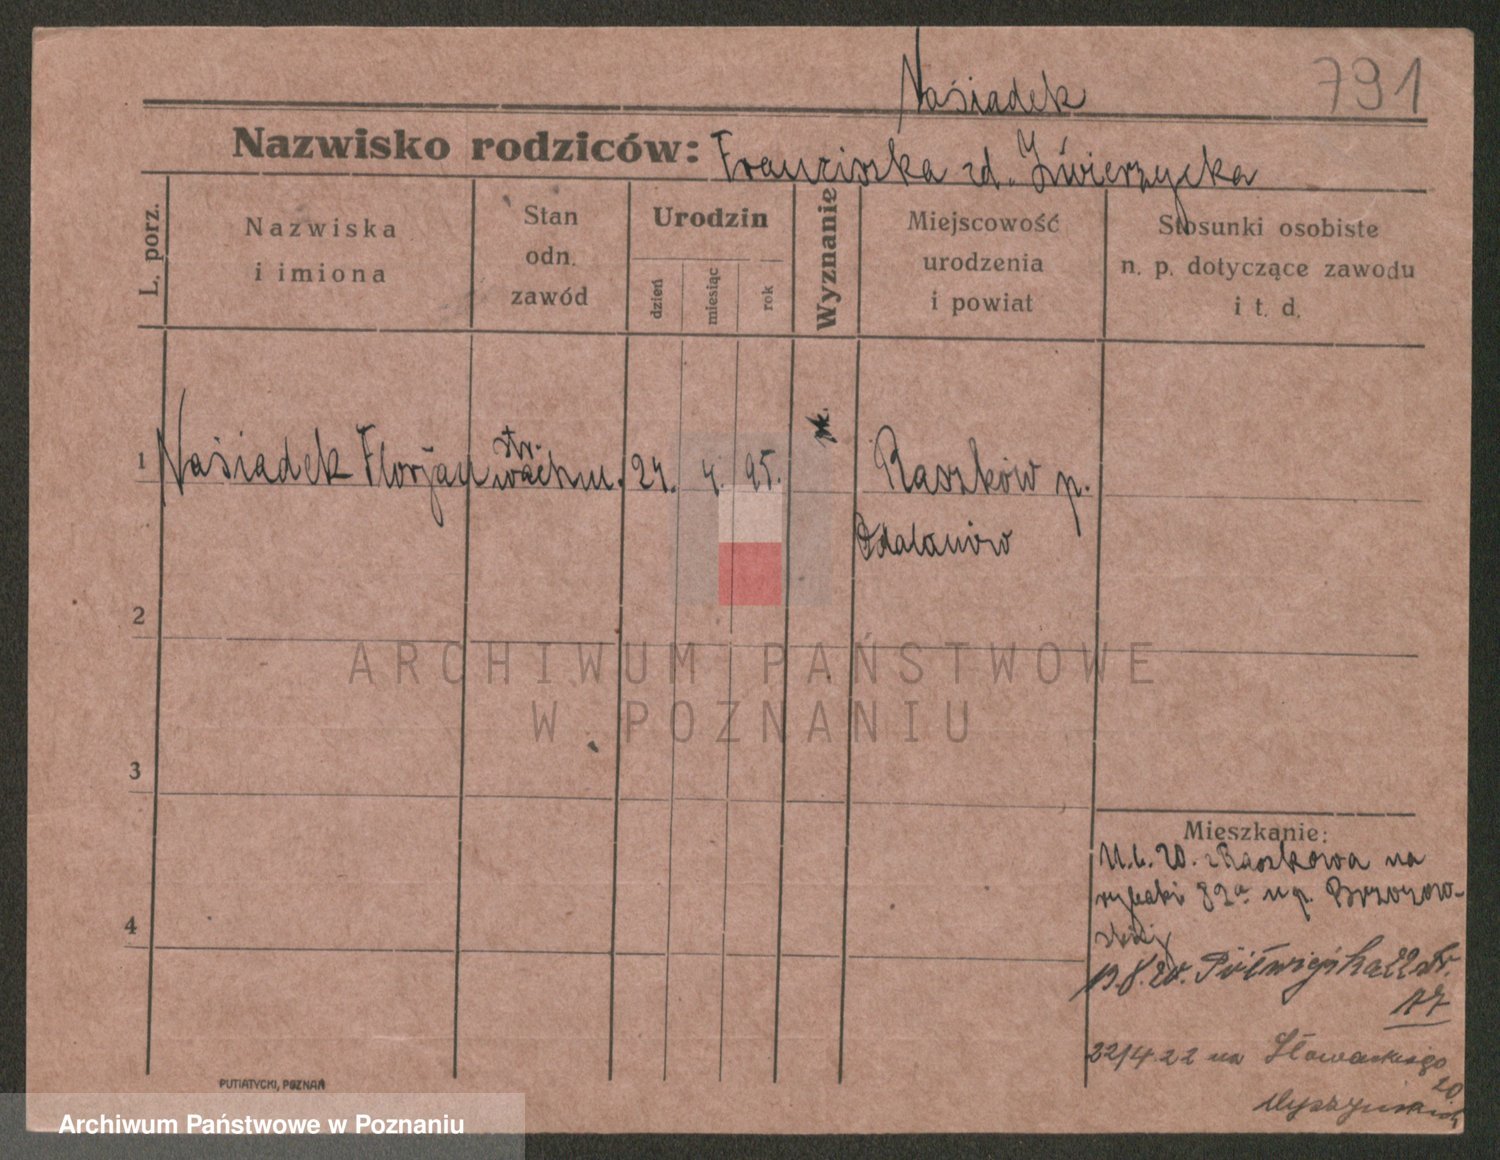 Nasiadek
791
Nazwisko rodziców: Franciszka zd. Zwierzycka
L. porz.
Nazwiska
i imiona
Stan
odn.
zawód
Urodzin
dzień
miesiąc
rok
Wyznanie
Miejscowość
urodzenia
i powiat
Stosunki osobiste
n. p. dotyczące zawodu
i t. d.
1 Nasiadek Florjan str. wachm. 24. 4. 95. rk. Raszków p.
Odalanów
2
ARCHIWUM PAŃSTWOWE
W POZNANIU
3
Mieszkanie:
11.6.20. z Raszkowa na
rybaki 82a u p. Brzozow-
skiej
4
13.8.20. Półwiejska 22 str.
22/4.22 na Słowackiego
20
PUTIATYCKI, POZNAŃ
Archiwum Państwowe w Poznaniu